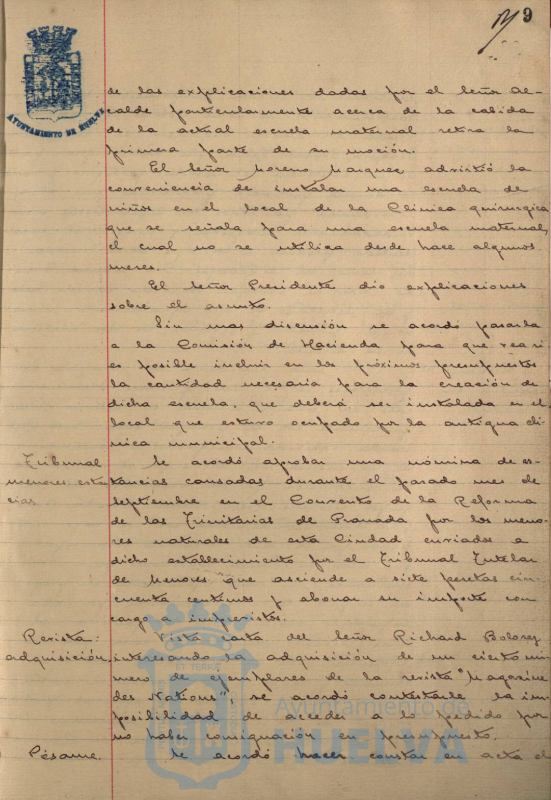 9
AYUNTAMIENTO DE HUELVA
de las explicaciones dadas por el Señor Al-
calde particularmente acerca de la cabida
de la actual escuela maternal retira la
primera parte de su moción.
El Señor Moreno Marquez advirtió la
conveniencia de instalar una escuela de
niños en el local de la Clínica quirurgica
que se señala para una escuela maternal,
el cual no se utiliza desde hace algunos
meses.
El Señor Presidente dio explicaciones
sobre el asunto.
Sin mas discusión se acordó pasarla
a la Comisión de Hacienda para que vea si
es posible incluir en los próximos presupuestos
la cantidad necesaria para la creación de
dicha escuela, que deberá ser instalada en el
local que estuvo ocupado por la antigua clí-
nica municipal.
Tribunal
menores estan
cias
Se acordó aprobar una nómina de es-
tancias causadas durante el pasado mes de
septiembre en el Convento de la Reforma
de las Trinitarias de Granada por los meno-
res naturales de esta Ciudad enviados a
dicho establecimiento por el Tribunal Tutelar
de Menores, que asciende a siete pesetas cin-
cuenta centimos y abonar su importe con
cargo a imprevistos.
Revista:
adquisición
Vista carta del Señor Richard
interesando la adquisición de un cierto nú-
mero de ejemplares de la revista "Magazine
des Nations", se acordó contestarle la im-
posibilidad de acceder a lo pedido por
no haber consignación en presupuesto.
Pésame.
Se acordó hacer constar en acta el
Ayuntamiento de
HUELVA